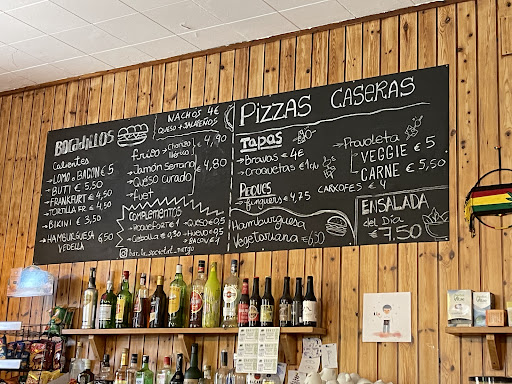 BOCADILLOS
NACHOS 4€
QUESO + JALAPEÑOS
Calientes
→ LOMO o BACON € 5
→ BUTI € 5,50
→ FRANKFURT € 4,50
→ TORTILLA FR € 4,50
→ BIKINI € 3,50
→ HAMBURGUESA 6,50
VEDELLA
frios → Chorizo
Ibérico € 4,90
→ Jamón Serrano
→ Queso Curado € 4,80
→ fuet
COMPLEMENTOS
→ Roquefort € 1 → Queso € 0,5
→ Cebolla € 0,50 → Huevo € 0,5
→ BACON € 1
bar_la_societat_
PIZZAS CASERAS
TAPAS
→ Bravas € 4
→ Croquetas € 1
PEQUES
→ finguers € 4,75
CARXOFES € 4
Hamburguesa
Vegetariana € 6,50
→ Piruleta
VEGGIE € 5
CARNE € 5,50
ENSALADA
del Día
€ 7.50